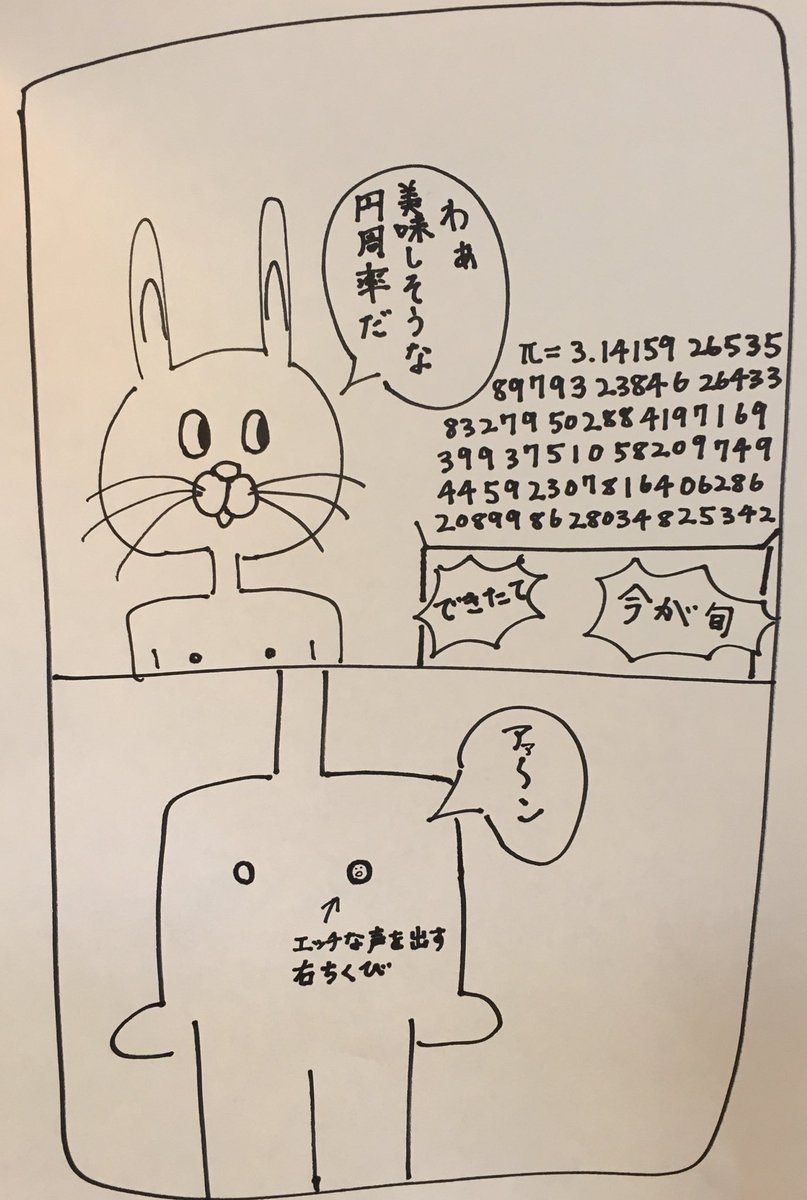 わぁ
美味しそうな
円周率だ
π=3.14159 26535
89793 23846 26433
83279 50288 4197169
399 37510 58209749
44592307816406286
20899 86 28034825342
できたて
今が旬
アァ〜ン
エッチな声を出す
右ちくび